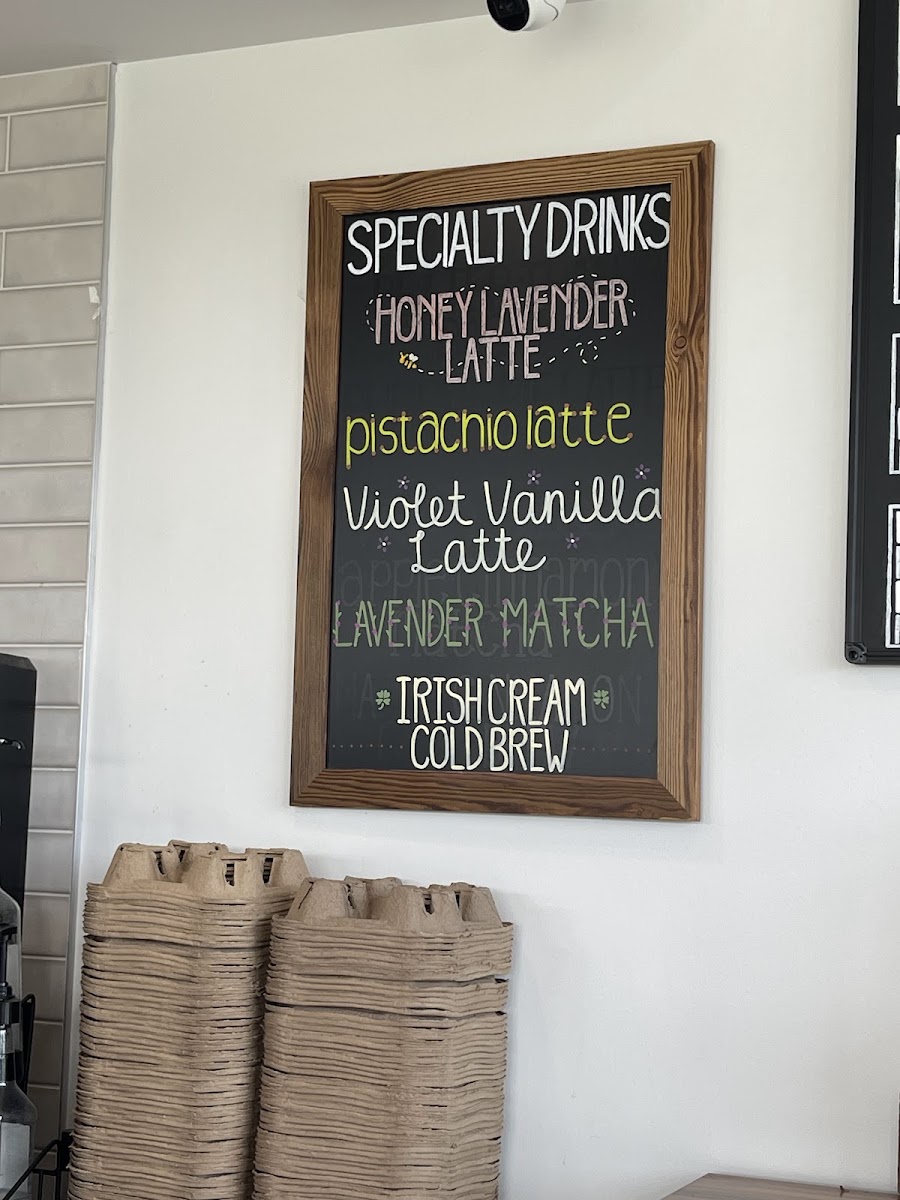 SPECIALTY DRINKS
HONEY LAVENDER
LATTE
pistachio latte
Violet Vanilla
Latte
apple cinnamon
LAVENDER MATCHA
IRISH CREAM
COLD BREW